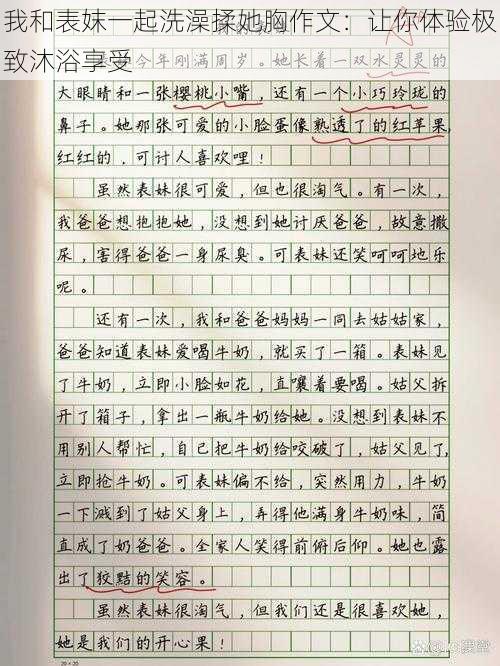 今年刚满周岁。她长着一双水灵灵的
大眼睛和一张樱桃小嘴，还有一个小巧玲珑的
鼻子。她那张可爱的小脸蛋像熟透了的红苹果，
红红的，可讨人喜欢哩！
虽然表妹很可爱，但也很淘气。有一次，
我爸爸想抱抱她，没想到她讨厌爸爸，故意撒
尿，害得爸爸一身尿臭。可表妹还笑呵呵地乐
呢。
还有一次，我和爸爸妈妈一同去姑姑家，
爸爸知道表妹爱喝牛奶，就买了一箱。表妹见
了牛奶，立即小脸如花，直嚷着要喝。姑父拆
开了箱子，拿出一瓶牛奶给她。没想到表妹不
用别人帮忙，自己把牛奶给咬破了，姑父见了，
立即抢牛奶。可表妹偏不给，突然用力，牛奶
一下溅到了姑父身上，弄得他满身牛奶味，简
直成了奶爸爸。全家人笑得前俯后仰。她也露
出了狡黠的笑容。
虽然表妹很淘气，但我们还是很喜欢她，
她是我们的开心果！
20×20